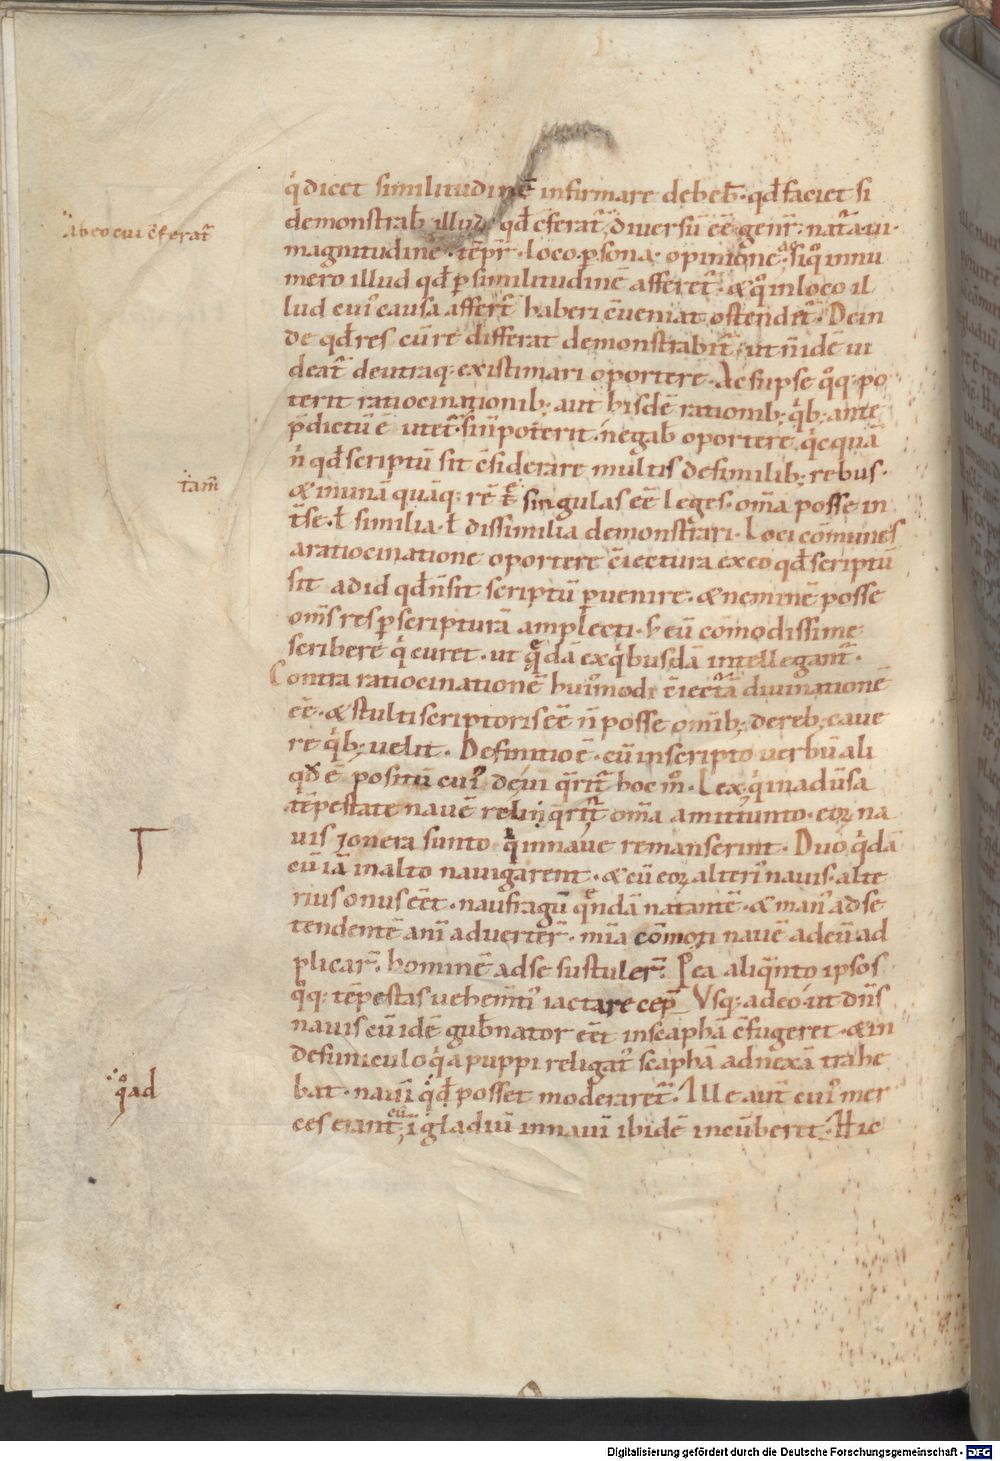 q̇dicet similitudinē infirmare debeb̄. qđ faciet si
demonstrab̄ illud qđ c̄feratᷣ diuersū eē gen̄r. natᷣa. ui.
abeo cui c̄feratᷣ
magnitudine. tēpr̄. loco. psona. opiniōne. si qͦ innu
mero illud qđ p similitudinē afferetᷣ. & qͦ inloco il
lud cuiᷣ causa affertᷣ haberi c̄ueniat ostendetᷣ. Dein
de qđ res cū re differat demonstrabitᷣ. ut ñ idē ui
deatᷣ deutraq; existimari oportere. Ac si ipse qͦq; po
terit ratiocinationib; aut hisdē rationib; q̇b; ante
p̄dictū ē utetᷣ. sin̄ poterit. negab̄ oportere q̇cquā
ñ qđ scriptū sit c̄siderare multis desimilib; rebus.
tam̄
& inunā quāq; rē singulas eē leges. om̄a posse in
t̄ se. ł similia. ł dissimilia demonstrari. Loci cōmunes
aratiocinatione oportere c̄iectura exeo qđ scriptū
sit adid qđ ñ sit scriptū puenire. & neminē posse
om̄s res p scripturā amplecti. s; eū cōmodissime
scribere q̇ curet. ut q̄dā exq̇busdā intellegantᷣ.
Contra ratiocinationē huiᷣmodi c̄iectᷣā diuinatione
eē. & stulti scriptoris eē ñ posse omīb; dereb; caue
re q̇b; uelit. Definitio ē. cū inscripto uerbū ali
qđ ē positū cuiᷣ deui q̄ritᷣ hoc m̊. Lex. q̇ inaduersa
tēpestate nauē om̄a amittunto. eoꝝ na
uis ⁊ onera sunto q̇ innaue remanserint. Duo q̇dā
cū iā inalto nauigarent. & cū eoꝝ alteriᷣ nauis. alte
rius onus eēt. naufragū q̄ndā natantē. & manᷣ adse
tendentē anī aduertēr. mīa cōmoti nauē adeū ad
plicar̄. hominē adse sustuler̄. Pea aliq̄nto ipsos
qͦq; tēpestas uehem̄tᷣ iactare cep̄. Usq; adeo ut dn̄s
nauis cū idē gub̄nator eēt inscaphā c̄fugeret. & in
de funiculo q̇ apuppi religatᷣ scaphā adnexā trahe
bat. nauī qͦađ posset moderaretᷣ. Ille aut̄ cuiᷣ mer
qͦad
ces erant, ī gladiū innaui ibidē incūberet. Hic